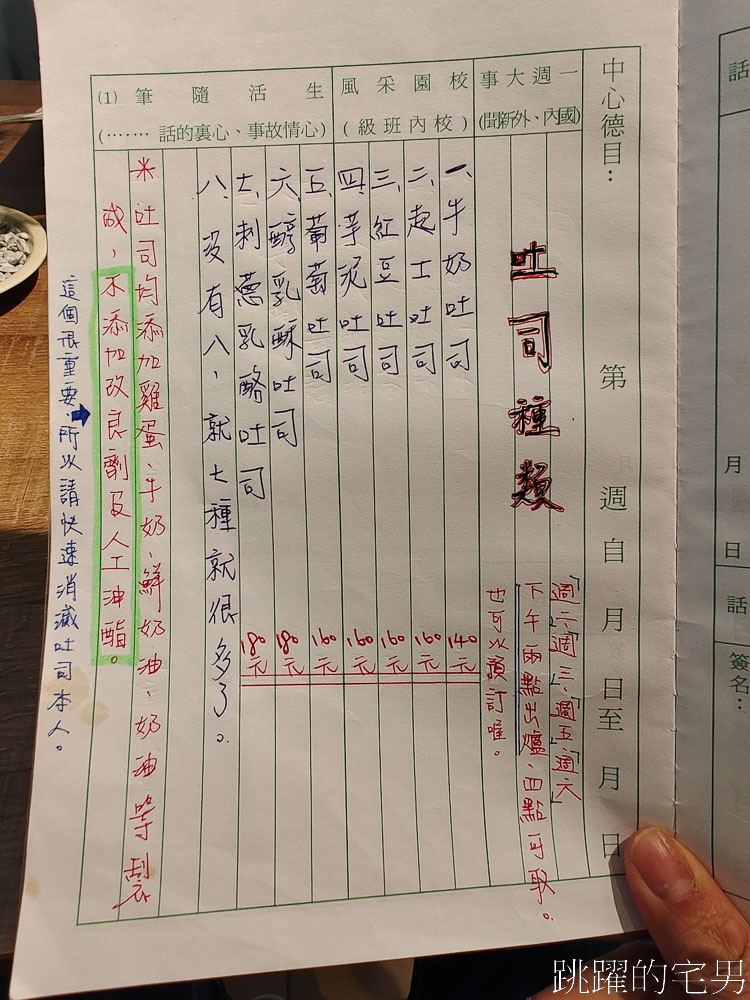 中心德目：
第　週自　月　日至　月　日
一週大事
(國內、外新聞)
校園采風
(校內班級)
生活隨筆
(心情故事、心裏的話……
(1)
吐司種類
週二、週三、週五、週六
下午兩點出爐、四點可取。
也可以預訂唯。
一、牛奶吐司 140元
二、起士吐司 160元
三、紅豆吐司 160元
四、芋泥吐司 160元
五、葡萄吐司 160元
六、醇乳酥吐司 180元
七、刺蔥乳酪吐司 180元
八、沒有八，就七種就很多了。
米 吐司均添加雞蛋、牛奶、鮮奶油、奶油等製
成，不添加改良劑及人工油酯。
這個很重要，所以請快速消滅吐司本人。
話
月
日
話
簽名：
跳躍的宅男